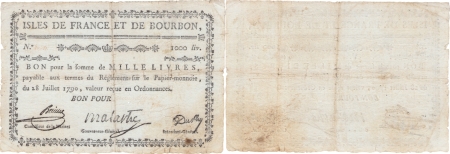 ISLES DE FRANCE ET DE BOURBON,
N.° 1000 liv.
BON pour la somme de MILLE LIVRES,
payable aux termes du Règlement sur le Papier-monnoie,
du 28 Juillet 1790, valeur reçue en Ordonnances.
BON POUR
Malartic
Dupuy
Gouverneur-Général